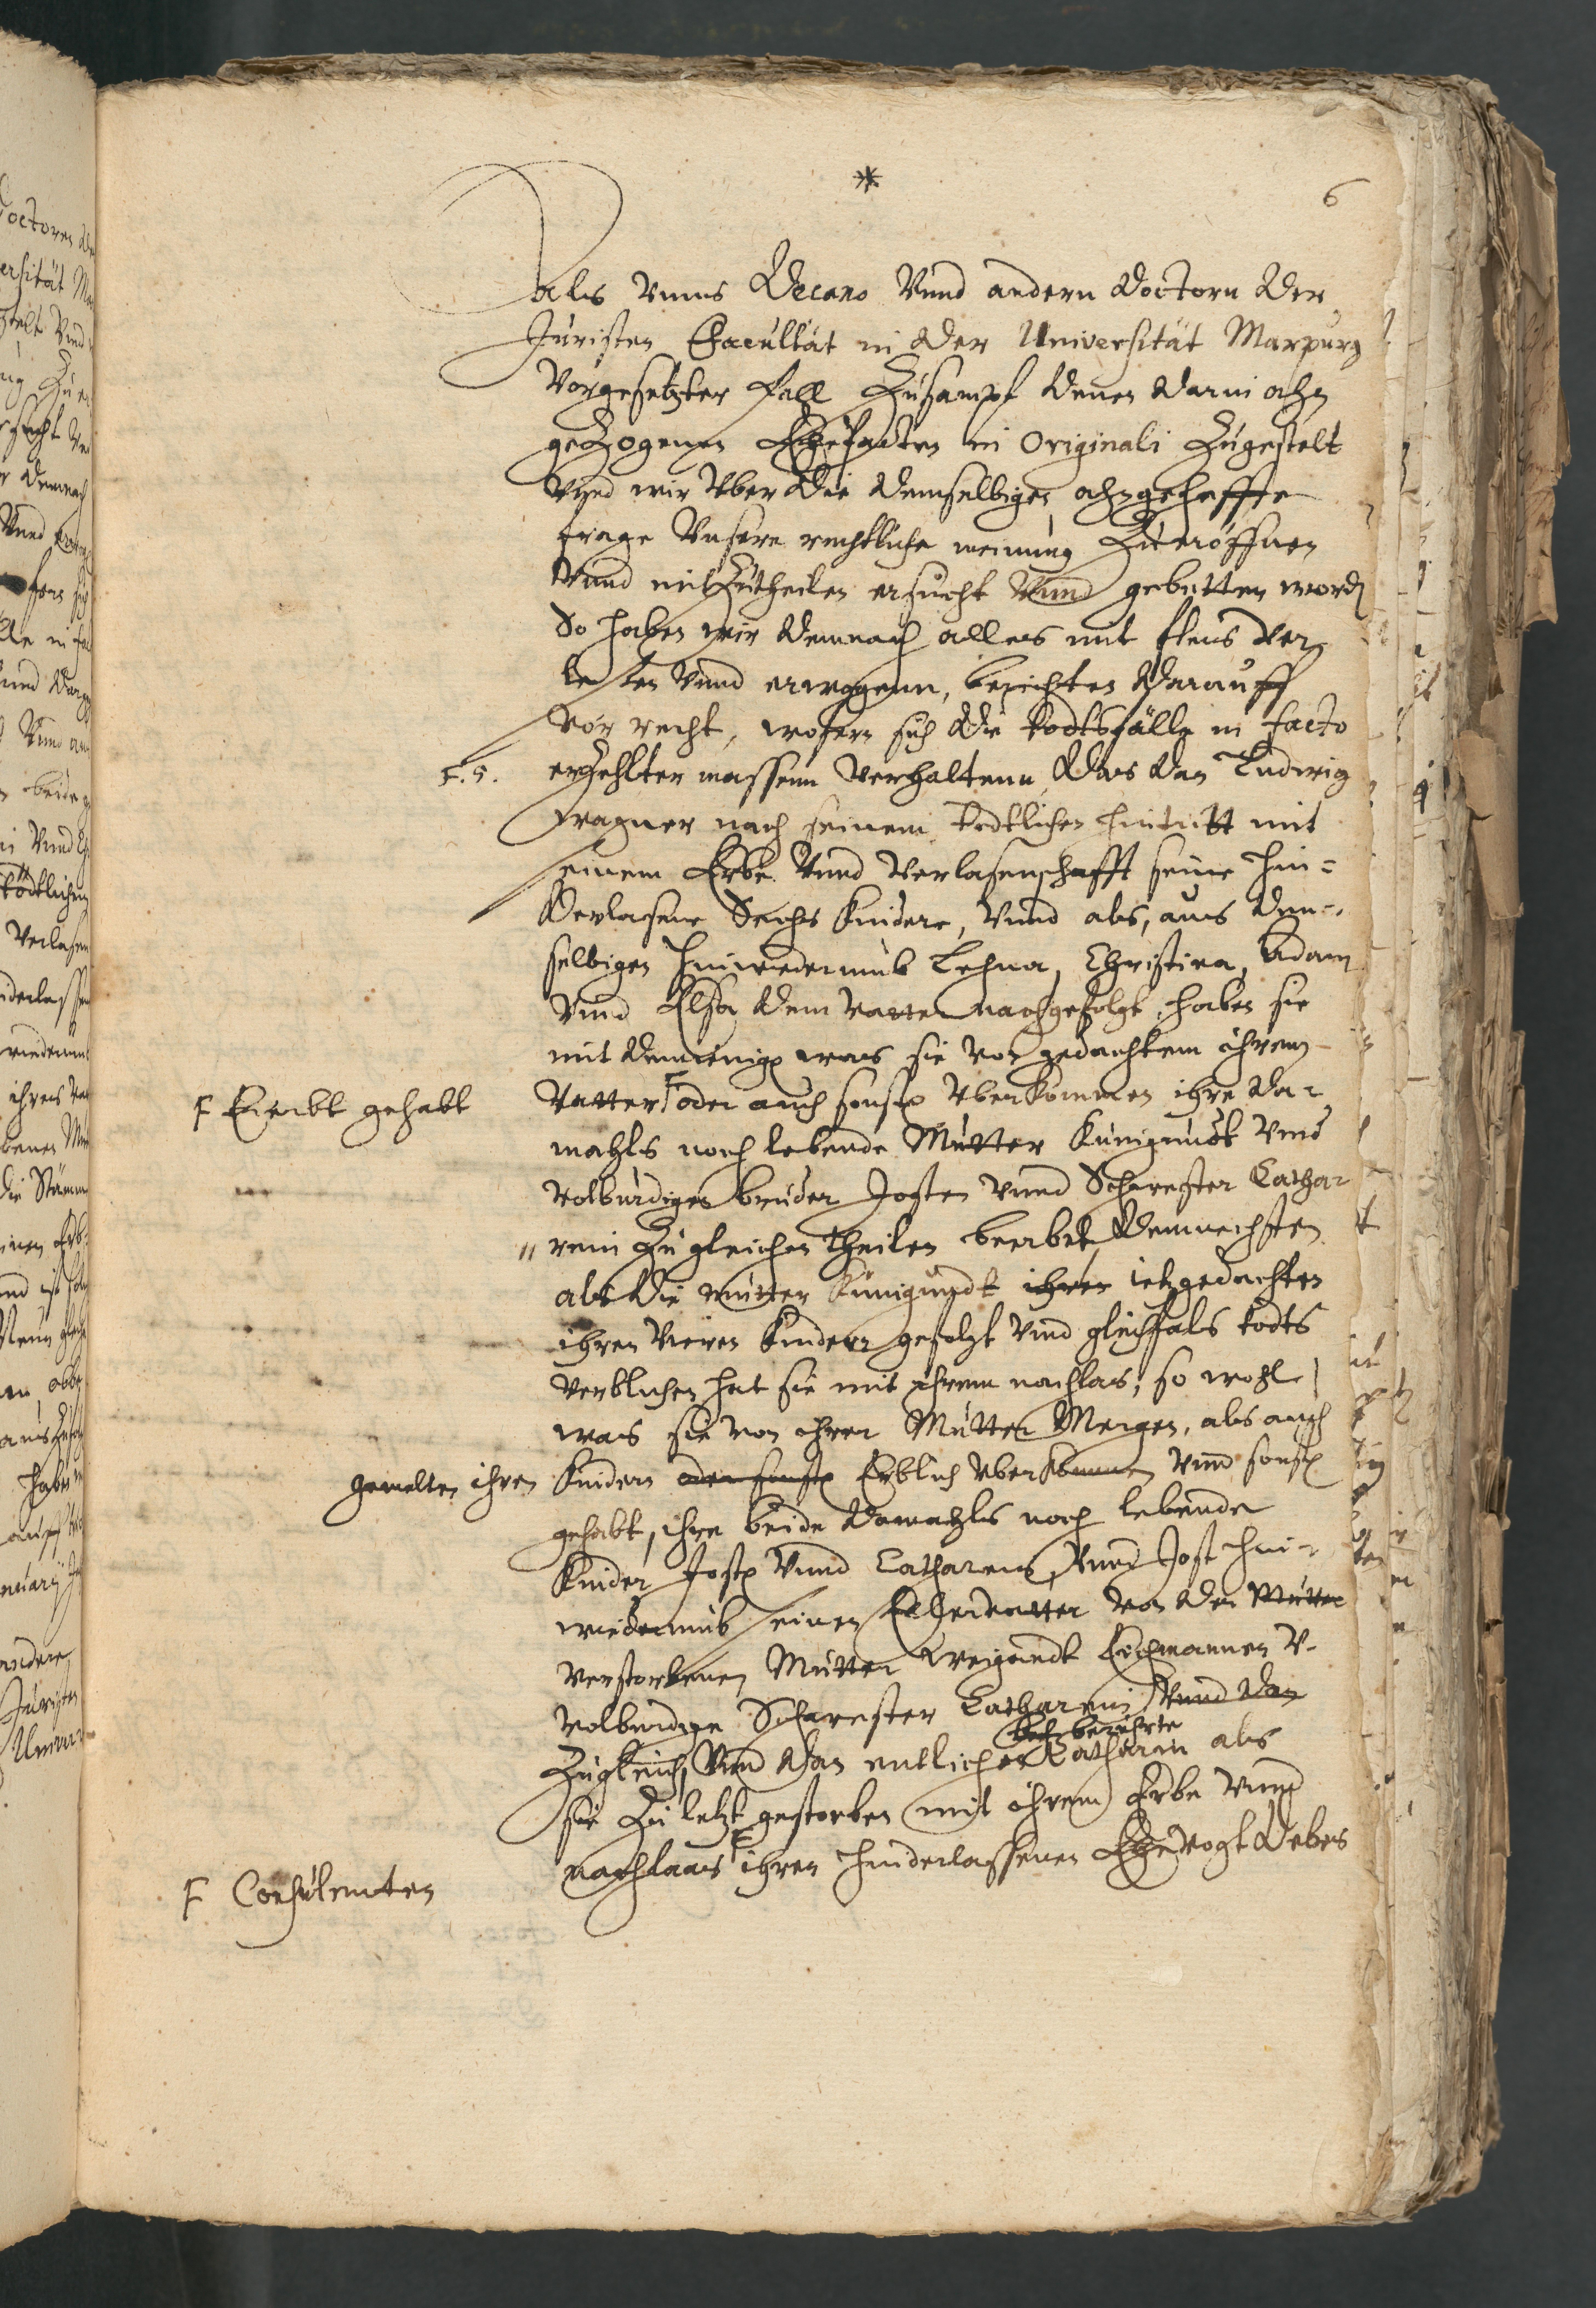 *
6
Als Unns Decano Vnnd andern Doctorn Der
Juristen Facultät in Der Universität Marpurg
Vorgesetzter fall Zusampt Denen Darin ahn
geZogenen Ehepacten in Originali Zugestelt
Vnnd wir Vber Die Demselbigen ahngeheffte
frage Vnsere rechtliche meinung Zu eröffnen
Vnnd mitZutheilen ersucht Vnnd gebetten word
So haben wir Demnach alles mit fleis Ver
lesen Vnnd erwogenn, berichten Darauff
Vor recht, wofern sich Die todtsfälle in facto
F. 5. erZehlter massenn Verhaltenn, Das Dan Ludwig
Wagner nach seinem todtlichen hintritt mit
seinem Erbe Vnnd Verlasenschafft seine hin=
Verlasene Sechs Kindere, Vnnd als, aus Den=
selbigen hinwiederumb Lehna, Christina, Adam
Vnnd Elsa Dem Vatter nachgefolgt, haben sie
mit Demienige was sie von gedachtem ihrem
F Ererbt gehabt
Vatter F oder auch sonste Vberkommen ihre Da=
mahls noch lebende Mutter Kunigundt Vnd
Volburdigen bruder Josten Vnnd Schwester Cathar
rein Zu gleichen theilen beerbet, Demnechsten
als Die mutter Kunigundt ihren ietzgedachten
ihren Vieren Kindern gefolgt Vnd gleichfals todts
Verblichen hat sie mit ihrem nachlas, so wohl
was sie von ihrer Mutter Mergen, als auch
gemelten ihren Kindern oder sonste Erblich Vberkommen Vnnd sonste
gehabt, ihre beide Damahls noch lebende
Kinder Joste Vnnd Catharein, Vnnd Jost hin=
wiederumb seinen Eltervatter von Der Mutter
Verstorbenen Mutter Weigandt Eichmannen V.
Volburdige Schwester Catharein Vnnd Dan
Zugleich, Vnnd Dan entlichen Catharin als
berührte
sie Zu letzt gestorben mit ihrem Erbe Vnnd
nachlaas F ihren hinderlassenen Ehevogt Debes
F Consulenten